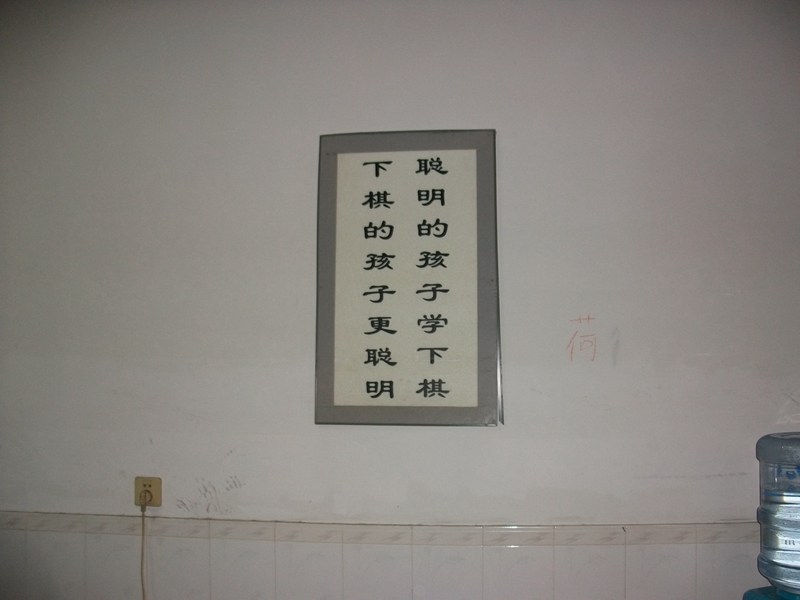 聪明的孩子学下棋
下棋的孩子更聪明
荷